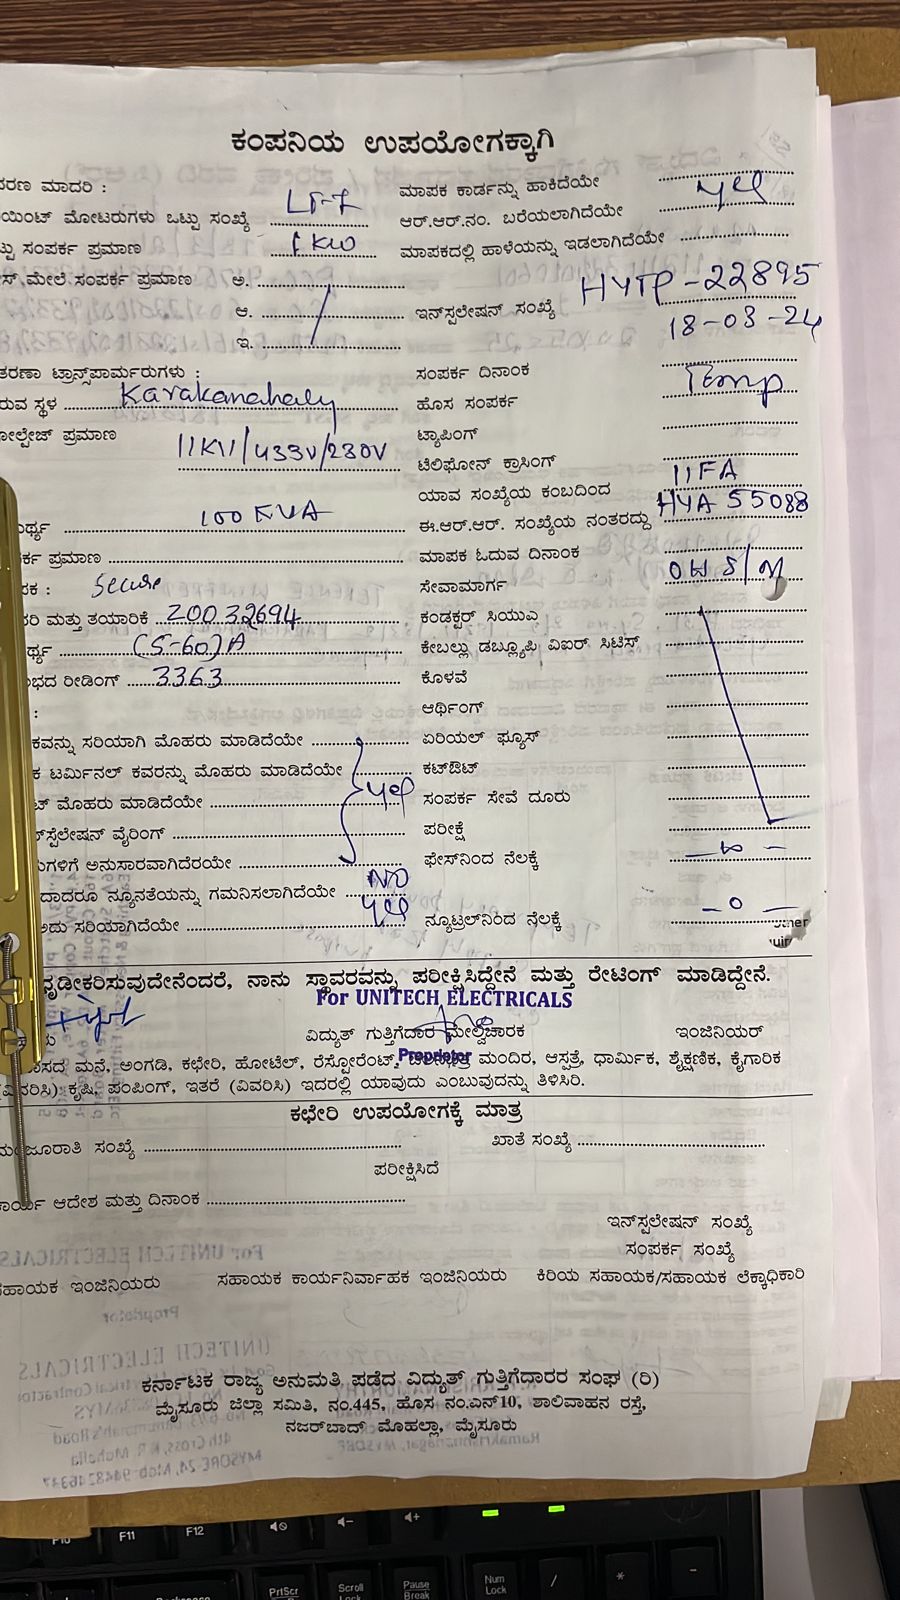 ಕಂಪನಿಯ ಉಪಯೋಗಕ್ಕಾಗಿ
ಮಾದರಿ :
LT-7
ಮಾಪಕ ಕಾರ್ಡನ್ನು ಹಾಕಿದೆಯೇ
yes
ಮೋಟರುಗಳು ಒಟ್ಟು ಸಂಖ್ಯೆ
ಆರ್.ಆರ್.ನಂ. ಬರೆಯಲಾಗಿದೆಯೇ
ಸಂಪರ್ಕ ಪ್ರಮಾಣ 1KW
ಮಾಪಕದಲ್ಲಿ ಹಾಳೆಯನ್ನು ಇಡಲಾಗಿದೆಯೇ
ಮೇಲೆ ಸಂಪರ್ಕ ಪ್ರಮಾಣ ಅ.
ಆ.
ಇನ್‌ಸ್ಪಲೇಷನ್ ಸಂಖ್ಯೆ HYTP-22895
ಇ.
18-03-24
ಟ್ರಾನ್ಸ್‌ಪಾರ್ಮರುಗಳು :
ಸಂಪರ್ಕ ದಿನಾಂಕ
ಸ್ಥಳ Karakanahaly
ಹೊಸ ಸಂಪರ್ಕ Temp
ಪ್ರಮಾಣ 11KV/433V/230V
ಟ್ಯಾಪಿಂಗ್
ಟೆಲಿಫೋನ್ ಕ್ರಾಸಿಂಗ್
ಯಾವ ಸಂಖ್ಯೆಯ ಕಂಬದಿಂದ 11FA
100 KVA
ಈ.ಆರ್.ಆರ್. ಸಂಖ್ಯೆಯ ನಂತರದ್ದು HYA 55088
ಪ್ರಮಾಣ
ಮಾಪಕ ಓದುವ ದಿನಾಂಕ
Secure
ಸೇವಾಮಾರ್ಗ
ಮತ್ತು ತಯಾರಿಕೆ 20032694
ಕಂಡಕ್ಟರ್ ಸಿಯುಎ
(5-60)A
ಕೇಬಲ್ಲು ಡಬ್ಲ್ಯೂಪಿ ವಿಐರ್ ಸಿಟಿಸ್
ರೀಡಿಂಗ್ 3363
ಕೊಳವೆ
:
ಆರ್ಥಿಂಗ್
ಸರಿಯಾಗಿ ಮೊಹರು ಮಾಡಿದೆಯೇ
ಏರಿಯಲ್ ಫ್ಯೂಸ್
ಟರ್ಮಿನಲ್ ಕವರನ್ನು ಮೊಹರು ಮಾಡಿದೆಯೇ
ಕಟ್‌ಔಟ್
ಮೊಹರು ಮಾಡಿದೆಯೇ yes
ಸಂಪರ್ಕ ಸೇವೆ ದೂರು
ವೈರಿಂಗ್
ಪರೀಕ್ಷೆ
ಅನುಸಾರವಾಗಿದೆರಯೇ
ಫೇಸ್‌ನಿಂದ ನೆಲಕ್ಕೆ
ನ್ಯೂನತೆಯನ್ನು ಗಮನಿಸಲಾಗಿದೆಯೇ NO
ಸರಿಯಾಗಿದೆಯೇ yes
ನ್ಯೂಟ್ರಲ್‌ನಿಂದ ನೆಲಕ್ಕೆ - 0 -
ನಾನು ಸ್ಥಾವರವನ್ನು ಪರೀಕ್ಷಿಸಿದ್ದೇನೆ ಮತ್ತು ರೇಟಿಂಗ್ ಮಾಡಿದ್ದೇನೆ.
For UNITECH ELECTRICALS
ವಿದ್ಯುತ್ ಗುತ್ತಿಗೆದಾರ ಮೇಲ್ವಿಚಾರಕ
ಇಂಜಿನಿಯರ್
Proprietor
ಮನೆ, ಅಂಗಡಿ, ಕಛೇರಿ, ಹೋಟೆಲ್, ರೆಸ್ಟೋರೆಂಟ್, ಮಂದಿರ, ಆಸ್ಪತ್ರೆ, ಧಾರ್ಮಿಕ, ಶೈಕ್ಷಣಿಕ, ಕೈಗಾರಿಕ
ಕೃಷಿ, ಪಂಪಿಂಗ್, ಇತರೆ (ವಿವರಿಸಿ) ಇದರಲ್ಲಿ ಯಾವುದು ಎಂಬುವುದನ್ನು ತಿಳಿಸಿರಿ.
ಕಛೇರಿ ಉಪಯೋಗಕ್ಕೆ ಮಾತ್ರ
ಸಂಖ್ಯೆ
ಖಾತೆ ಸಂಖ್ಯೆ
ಪರೀಕ್ಷಿಸಿದೆ
ಆದೇಶ ಮತ್ತು ದಿನಾಂಕ
ಇನ್‌ಸ್ಪಲೇಷನ್ ಸಂಖ್ಯೆ
ಸಂಪರ್ಕ ಸಂಖ್ಯೆ
ಇಂಜಿನಿಯರು
ಸಹಾಯಕ ಕಾರ್ಯನಿರ್ವಾಹಕ ಇಂಜಿನಿಯರು
ಕಿರಿಯ ಸಹಾಯಕ/ಸಹಾಯಕ ಲೆಕ್ಕಾಧಿಕಾರಿ
ಕರ್ನಾಟಕ ರಾಜ್ಯ ಅನುಮತಿ ಪಡೆದ ವಿದ್ಯುತ್ ಗುತ್ತಿಗೆದಾರರ ಸಂಘ (ರಿ)
ಮೈಸೂರು ಜಿಲ್ಲಾ ಸಮಿತಿ, ನಂ.445, ಹೊಸ ನಂ.ಎನ್10, ಶಾಲಿವಾಹನ ರಸ್ತೆ,
ನಜರ್‌ಬಾದ್ ಮೊಹಲ್ಲಾ, ಮೈಸೂರು
F11
F12
PrtScr
Scroll
Lock
Pause
Break
Num
Lock
/
*
-